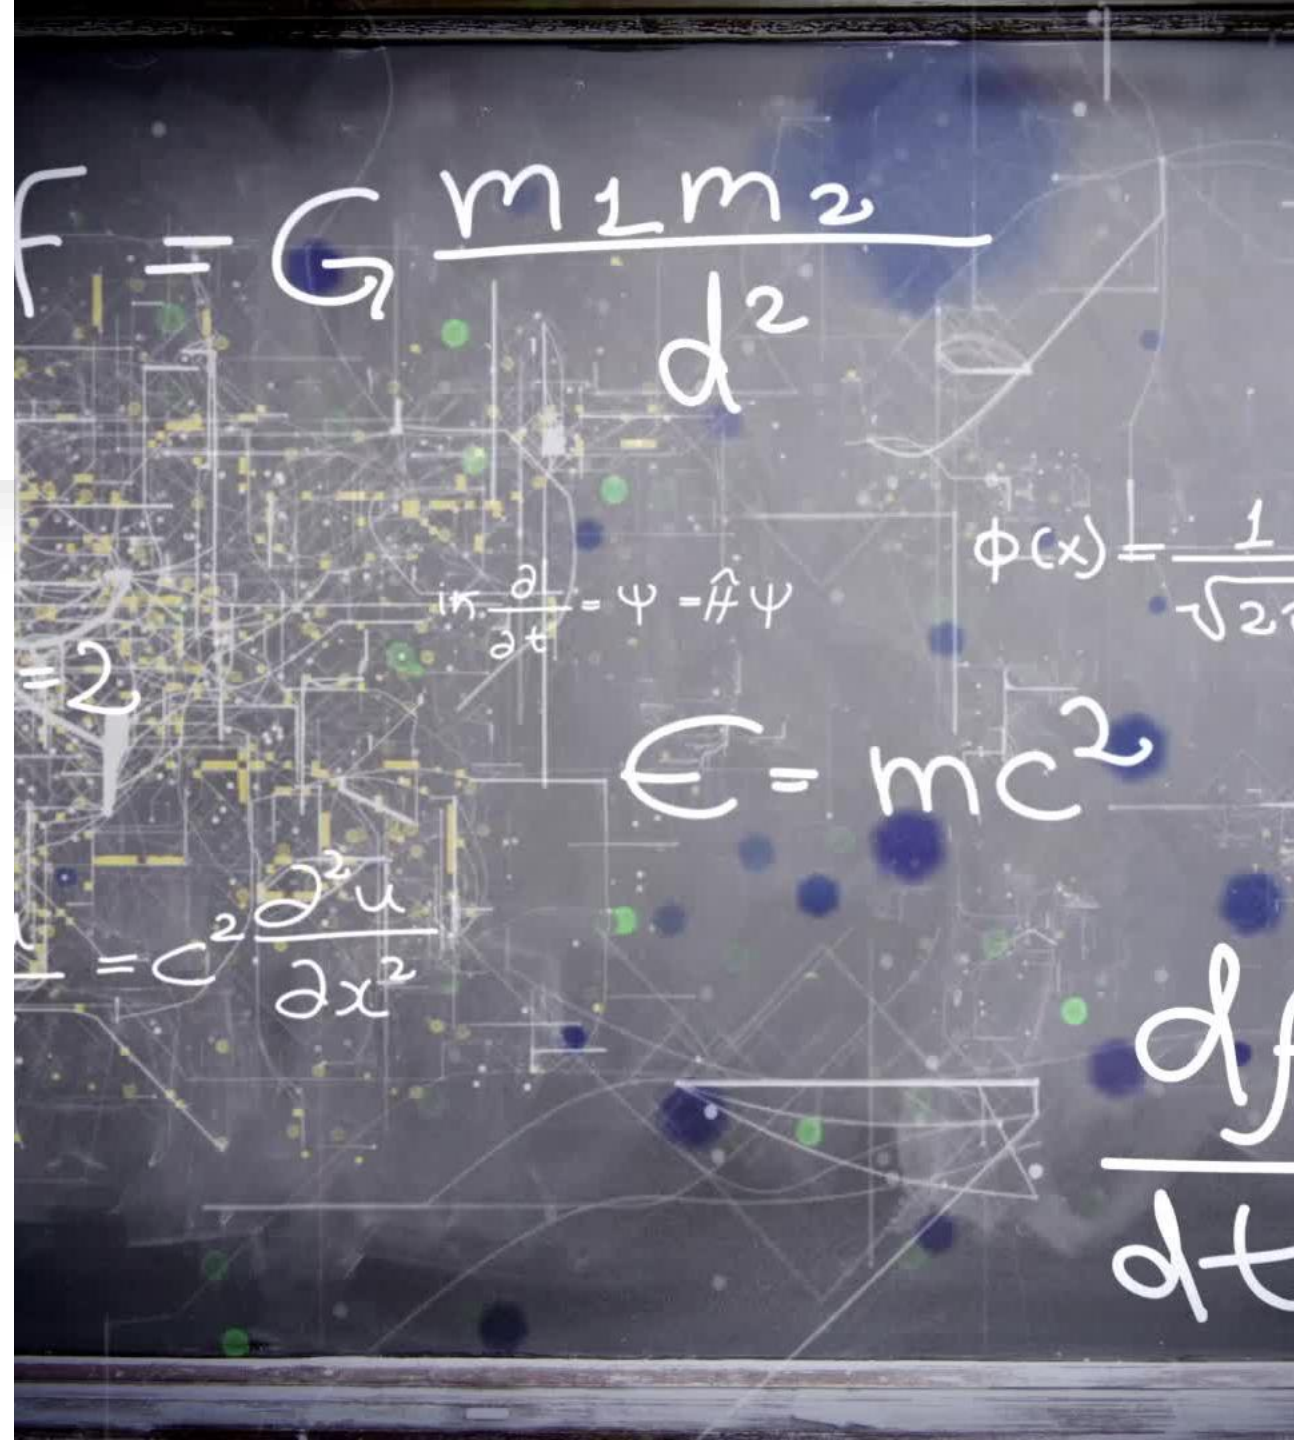 F = G m1 m2 / d²
ϕ(x) = 1 / √2
iħ ∂ / ∂t = Ψ = ĤΨ
= 2
E = mc²
= c² ∂²u / ∂x²
df / dt